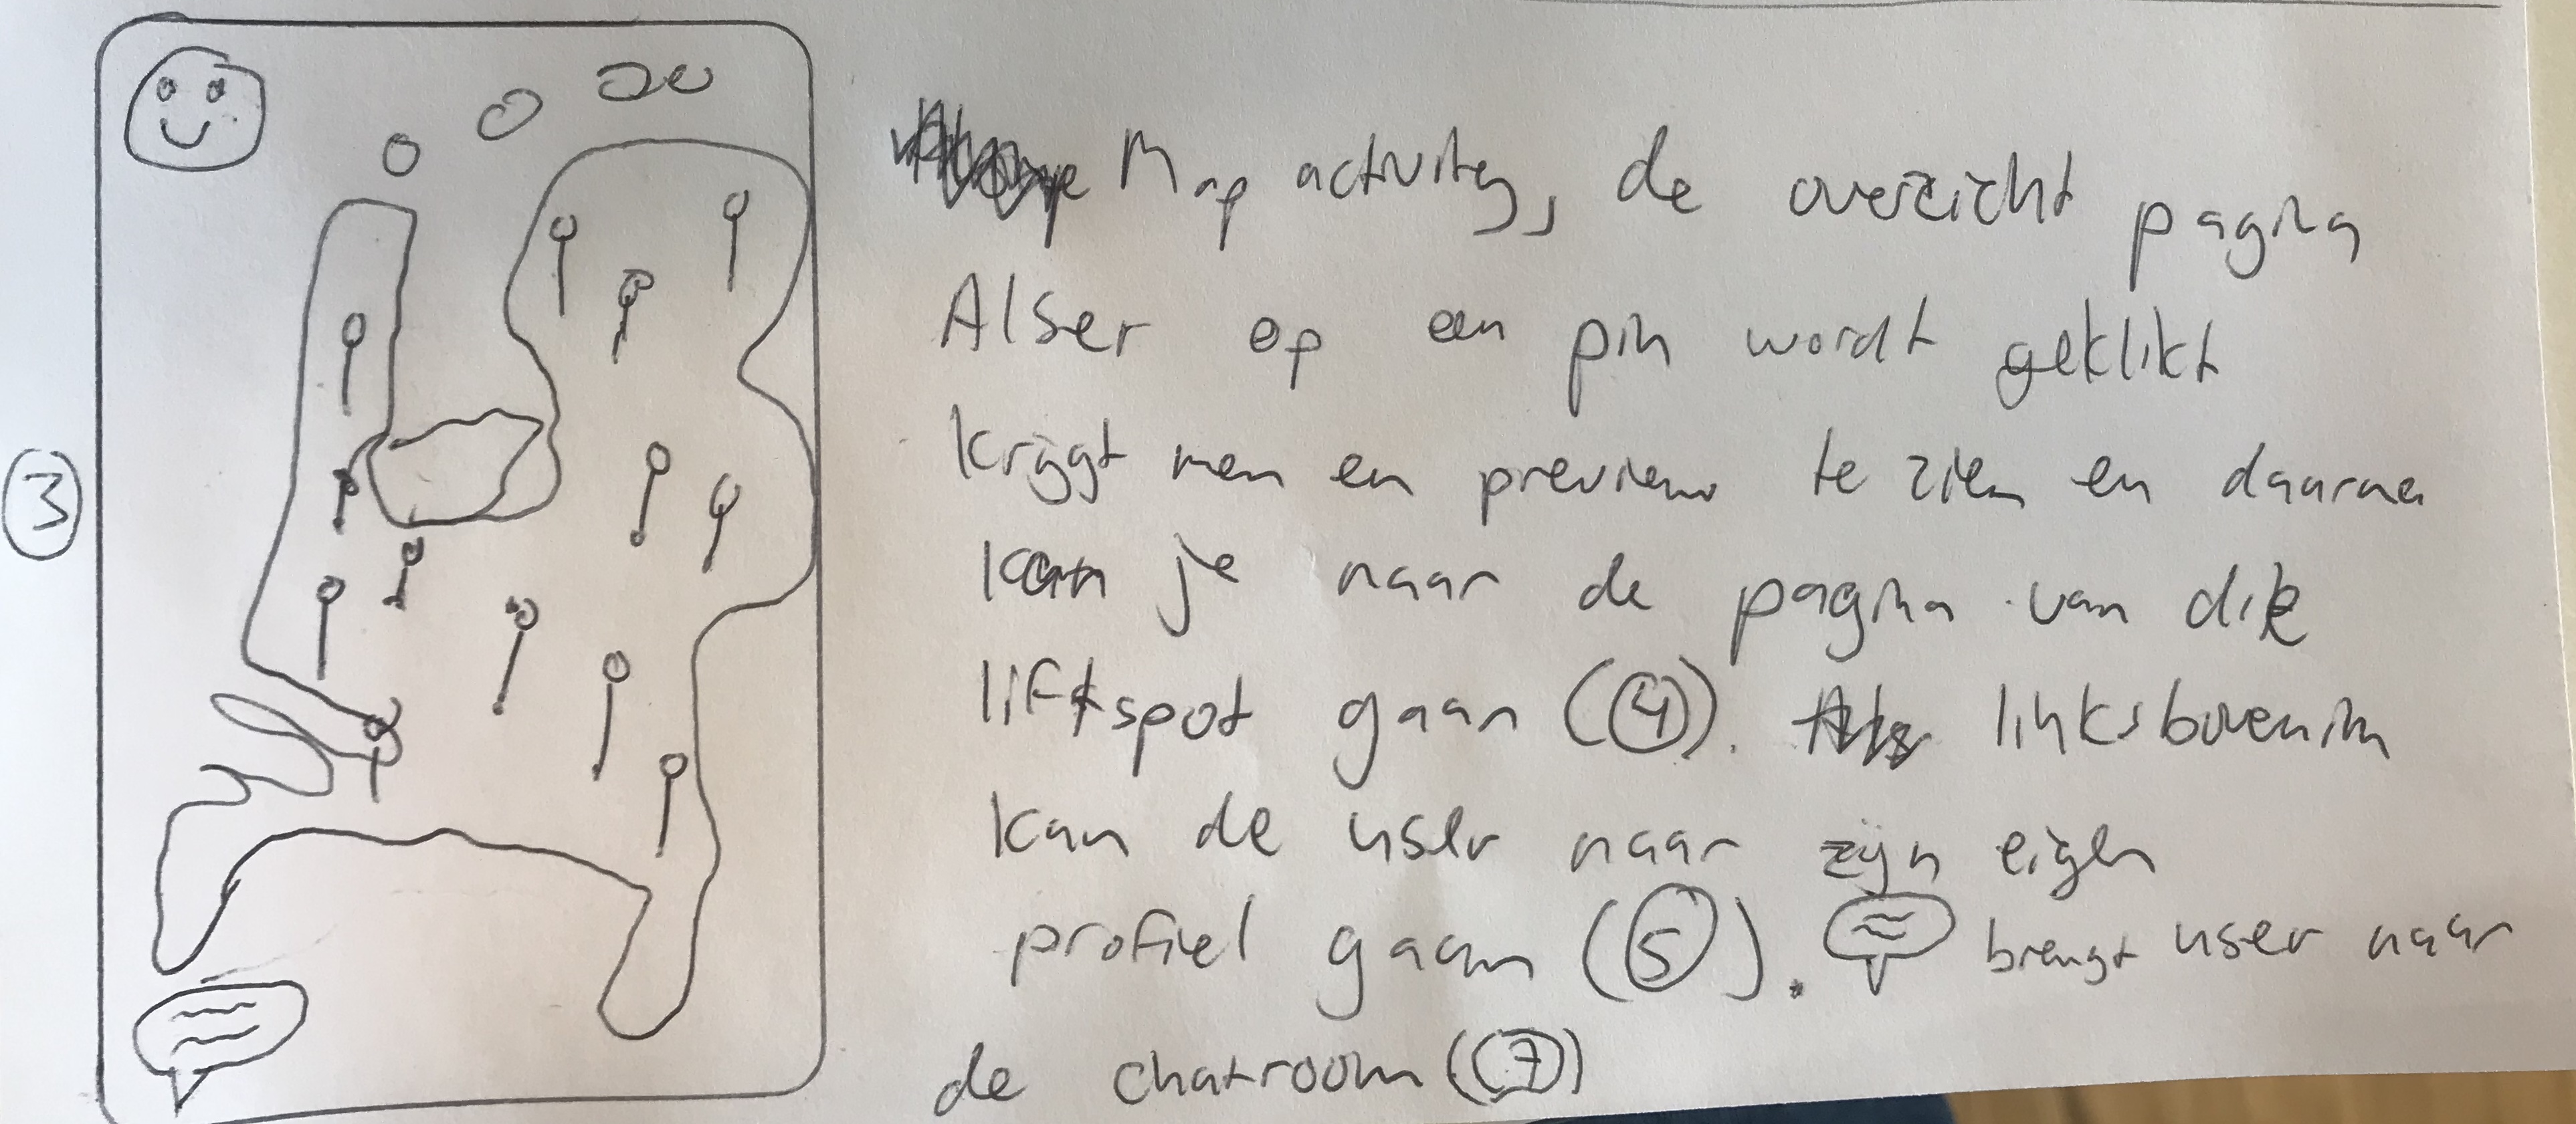 3
Map activity, de overzicht pagina
Alser op een pin wordt geklikt
krijgt men en preview te zien en daarna
kan je naar de pagina van die
liftspot gaan (4). linksbovenin
kan de user naar zijn eigen
profiel gaan (5). brengt user naar
de chatroom (7)